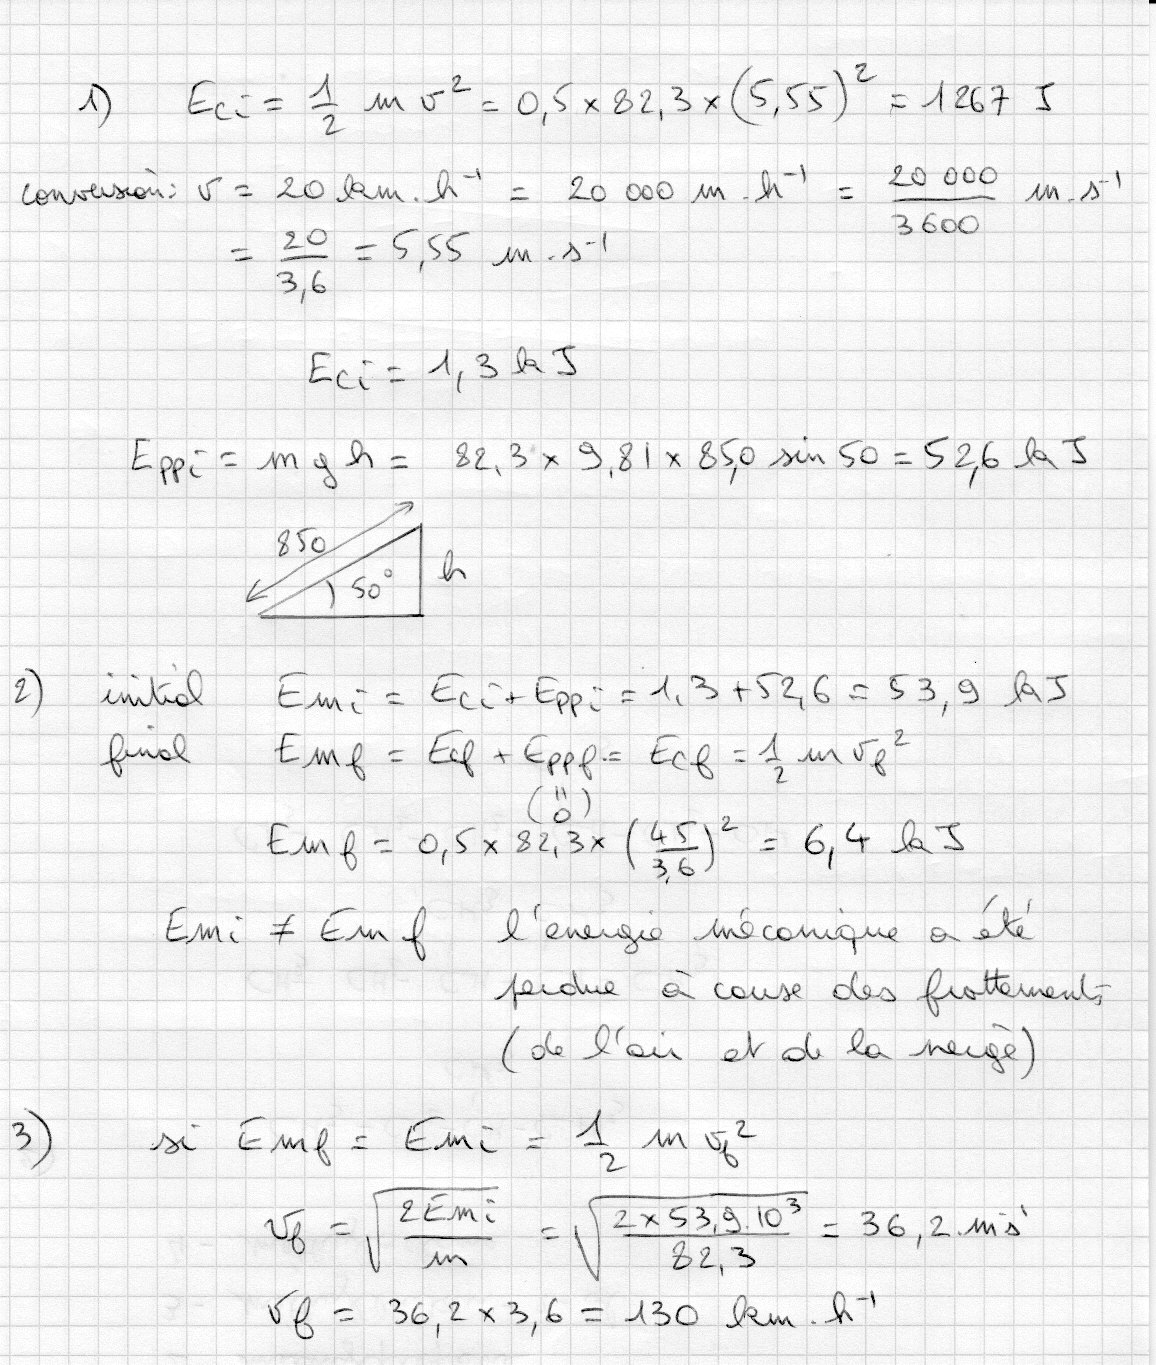 1) Eci = 1/2 m v² = 0,5 × 82,3 × (5,55)² = 1267 J
conversion: v = 20 km.h⁻¹ = 20 000 m.h⁻¹ = 20 000/3600 m.s⁻¹
= 20/3,6 = 5,55 m.s⁻¹
Eci = 1,3 kJ
Eppi = mgh = 82,3 × 9,81 × 85,0 sin 50 = 52,6 kJ
850
50°
h
2) initial Emi = Eci + Eppi = 1,3 + 52,6 = 53,9 kJ
final Emf = Ecf + Eppf = Ecf = 1/2 m vf²
(=0)
Emf = 0,5 × 82,3 × (45/3,6)² = 6,4 kJ
Emi ≠ Emf l'énergie mécanique a été
perdue à cause des frottements
(de l'air et de la neige)
3) si Emf = Emi = 1/2 m vf²
vf = √(2Emi/m) = √(2×53,9.10³/82,3) = 36,2 m.s⁻¹
vf = 36,2 × 3,6 = 130 km.h⁻¹